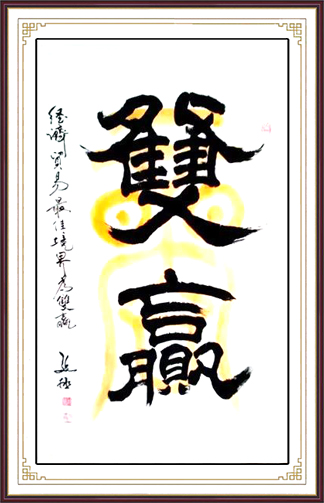 雙
贏
经濟貿易最佳境界为雙贏